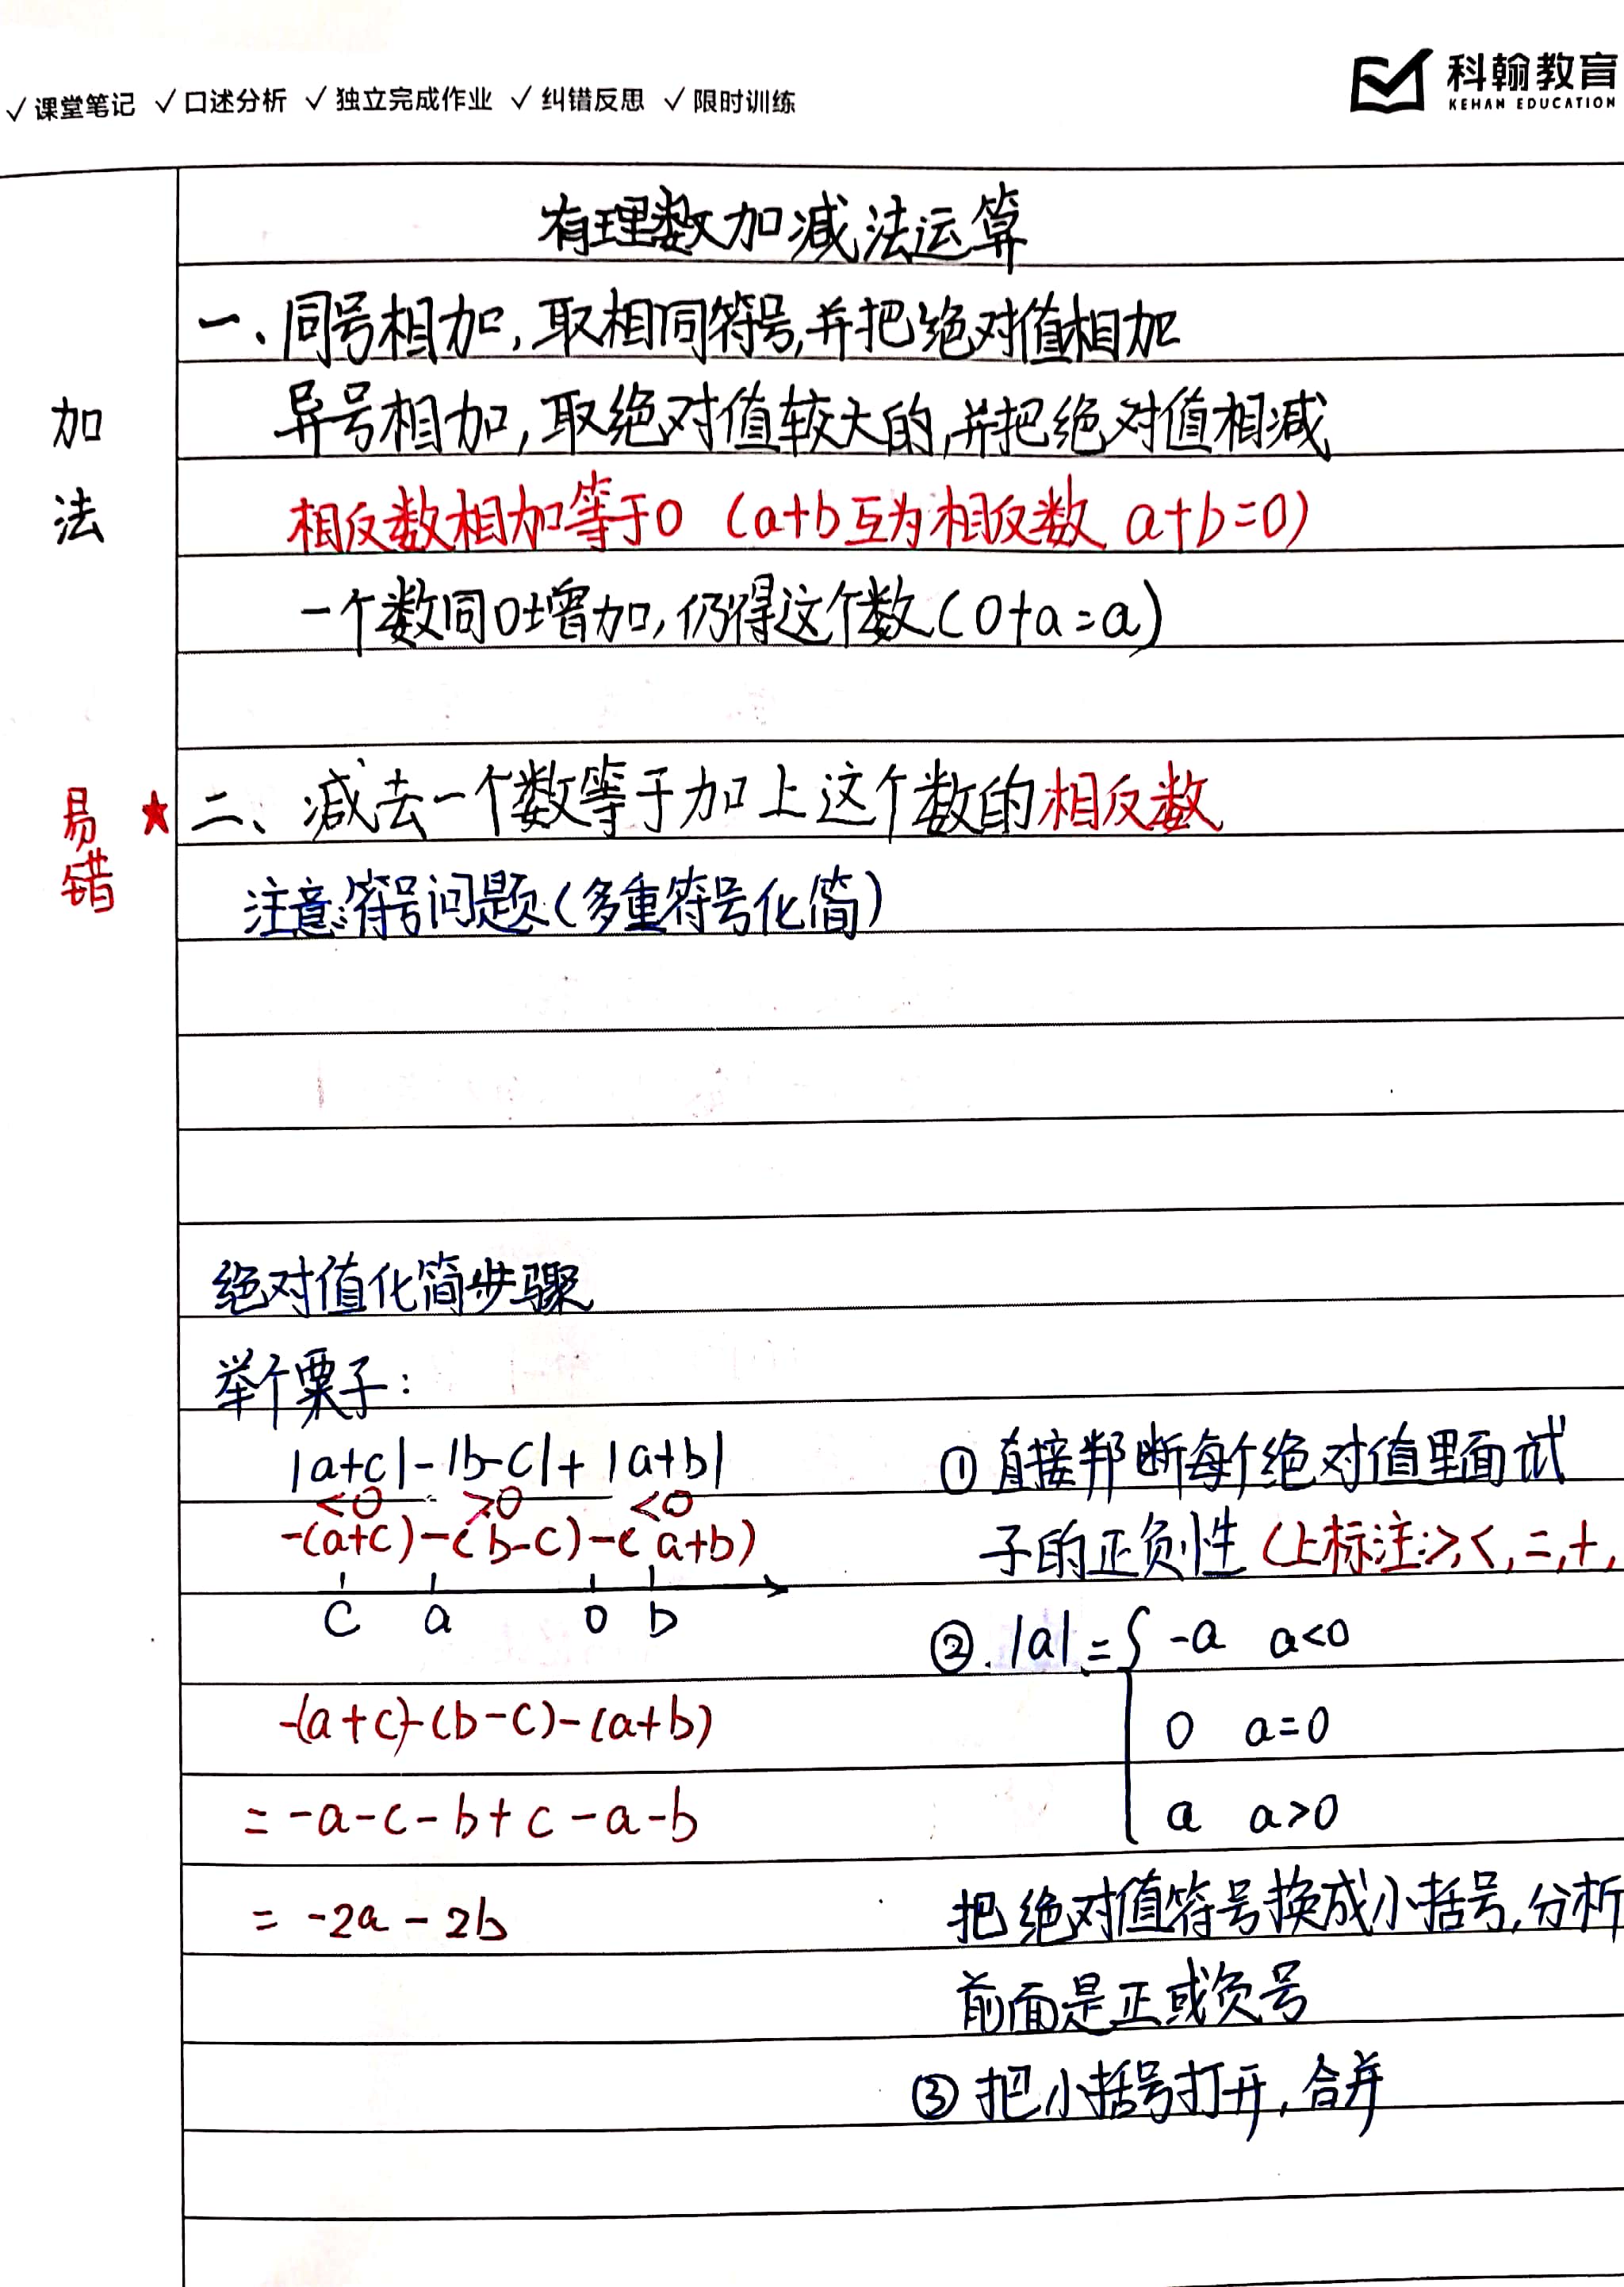 ✓课堂笔记 ✓口述分析 ✓独立完成作业 ✓纠错反思 ✓限时训练
科翰教育
KEHAN EDUCATION
有理数加减法运算
加法
一、同号相加,取相同符号,并把绝对值相加
异号相加,取绝对值较大的,并把绝对值相减
相反数相加等于0 (a+b互为相反数 a+b=0)
一个数同0增加,仍得这个数(0+a=a)
易错
★二、减去一个数等于加上这个数的相反数
注意:符号问题(多重符号化简)
绝对值化简步骤
举个栗子:
|a+c|-|b-c|+|a+b|
<0 >0 <0
-(a+c)-(b-c)-(a+b)
c a 0 b
-(a+c)-(b-c)-(a+b)
=-a-c-b+c-a-b
=-2a-2b
①直接判断每个绝对值里面试
子的正负性(上标注:>,<,=,+,
②.|a|={ -a a<0
0 a=0
a a>0
把绝对值符号换成小括号,分析
前面是正或负号
③把小括号打开,合并